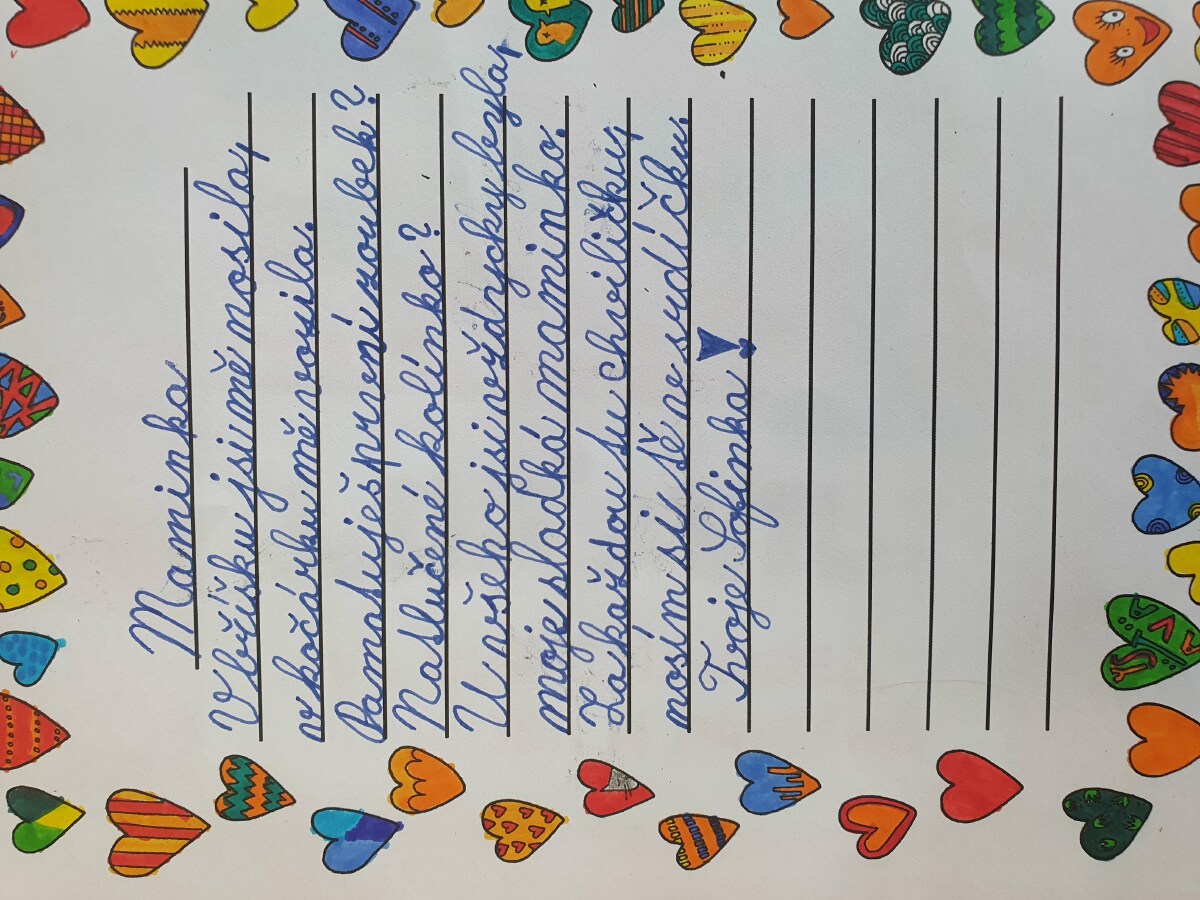 Maminka
V bříšku jsi mě nosila,
v kočárku mě vozila.
Pamatuješ první zoubek?
Natlučené kolínko?
U všeho jsi vždycky byla,
moje sladká maminko.
Za každou tu chviličku,
nosím si tě ve srdíčku.
Tvoje Sofinka